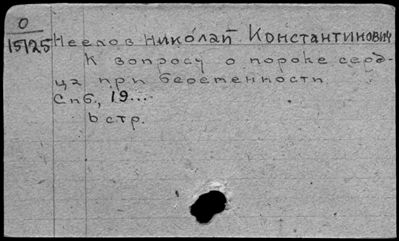 О
15125
Неелов Николай Константинович
К вопросу о пороке серд-
ца при беременности
Спб., 19....
6 стр.